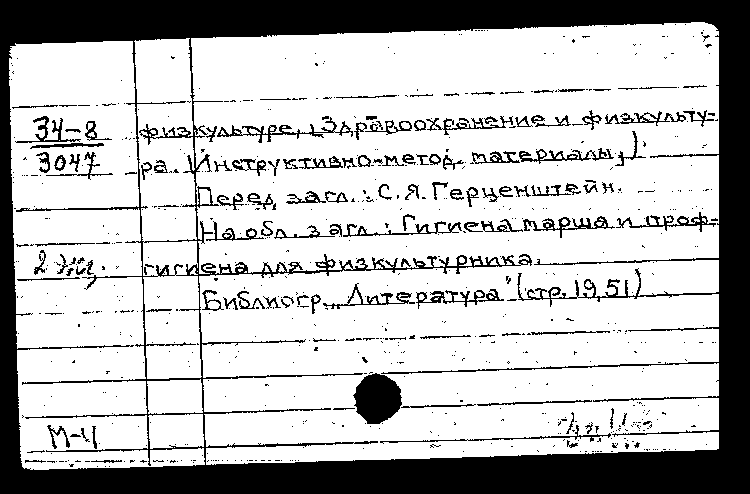 34-8
3047
физкультуре, (Здравоохранение и физкульту-
ра. Инструктивно-метод. материалы,)
Перед загл.: С. Я. Герценштейн.
На обл. загл.: Гигиена марша и проф-
2 экз.
гигиена для физкультурника.
Библиогр. „Литература" (стр. 19, 51)
М-